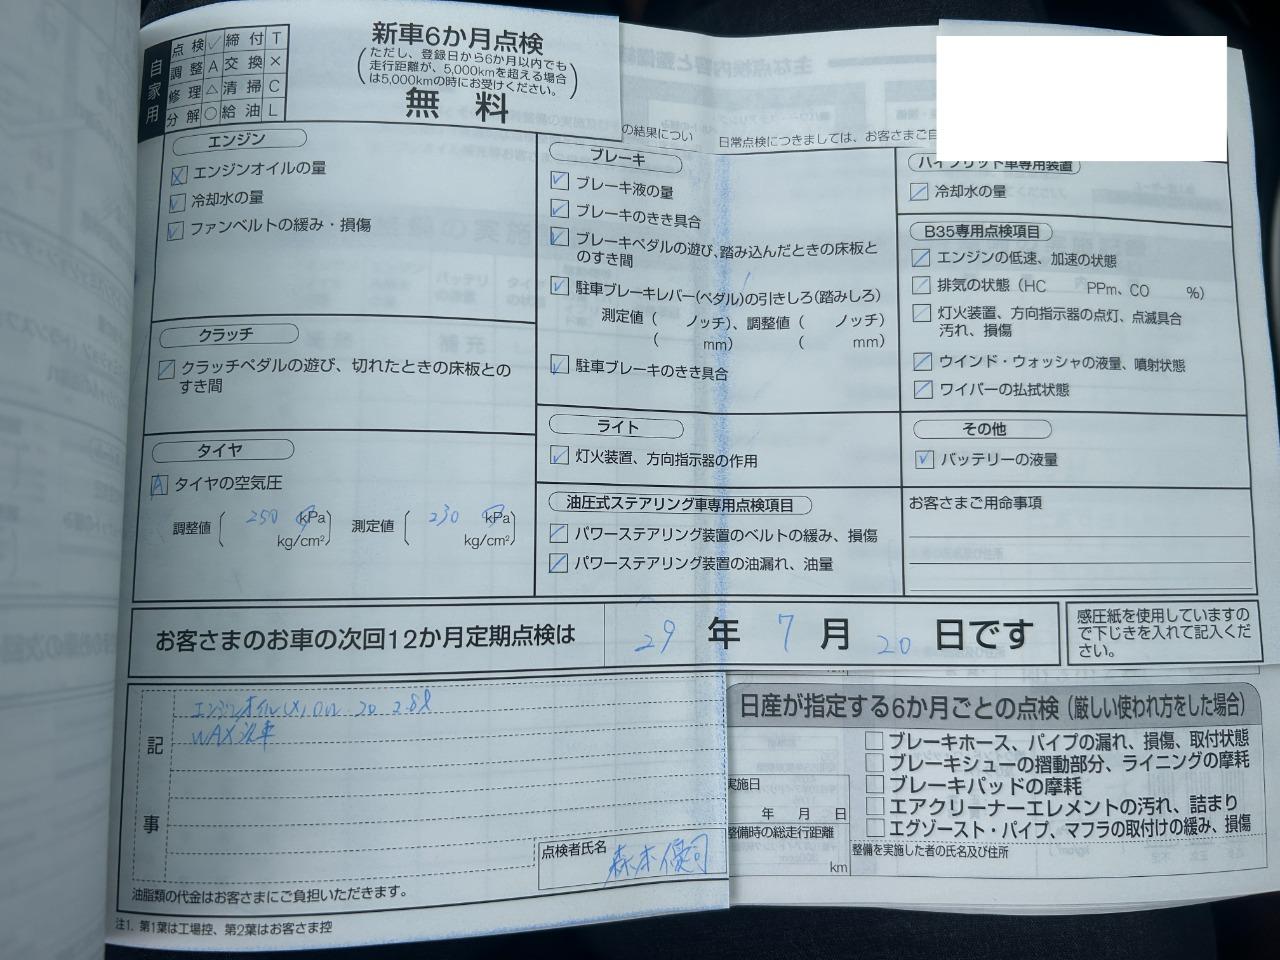 自家用
点検 ✓ 締付 T
調整 A 交換 ×
修理 △ 清掃 C
分解 ○ 給油 L
新車6か月点検
(ただし、登録日から6か月以内でも
走行距離が、5,000kmを超える場合
は5,000kmの時にお受けください。)
無料
の結果につい
日常点検につきましては、お客さまご自
エンジン
エンジンオイルの量
冷却水の量
ファンベルトの緩み・損傷
クラッチ
クラッチペダルの遊び、切れたときの床板との
すき間
タイヤ
A タイヤの空気圧
調整値 ( 250 kPa 測定値 ( 230 kPa
kg/cm²) kg/cm²)
ブレーキ
ブレーキ液の量
ブレーキのきき具合
ブレーキペダルの遊び、踏み込んだときの床板と
のすき間
駐車ブレーキレバー(ペダル)の引きしろ(踏みしろ)
測定値( ノッチ)、調整値( ノッチ)
( mm) ( mm)
駐車ブレーキのきき具合
ライト
灯火装置、方向指示器の作用
油圧式ステアリング車専用点検項目
パワーステアリング装置のベルトの緩み、損傷
パワーステアリング装置の油漏れ、油量
ハイブリッド車専用装置
冷却水の量
B35専用点検項目
エンジンの低速、加速の状態
排気の状態(HC PPm、CO %)
灯火装置、方向指示器の点灯、点滅具合
汚れ、損傷
ウインド・ウォッシャの液量、噴射状態
ワイパーの払拭状態
その他
バッテリーの液量
お客さまご用命事項
お客さまのお車の次回12か月定期点検は 29年 7月 20日です
感圧紙を使用していますの
で下じきを入れて記入くだ
さい。
記事
エンジンオイル 20 2.8ℓ
WAX洗車
点検者氏名 森本優司
油脂類の代金はお客さまにご負担いただきます。
注1. 第1葉は工場控、第2葉はお客さま控
日産が指定する6か月ごとの点検(厳しい使われ方をした場合)
ブレーキホース、パイプの漏れ、損傷、取付状態
ブレーキシューの摺動部分、ライニングの摩耗
ブレーキパッドの摩耗
エアクリーナーエレメントの汚れ、詰まり
エグゾースト・パイプ、マフラの取付けの緩み、損傷
実施日
年 月 日
整備時の総走行距離
km
整備を実施した者の氏名及び住所